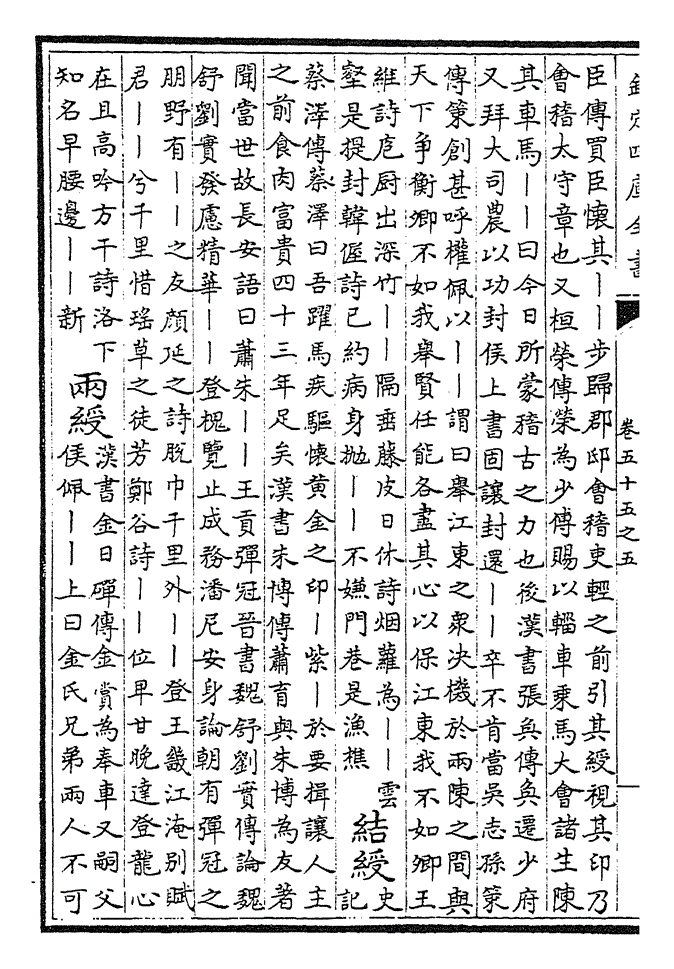 欽定四庫全書
卷五十五之五
臣傳買臣懷其丨丨步歸郡邸會稽吏輕之前引其綬視其印乃
會稽太守章也又桓榮傳榮為少傅賜以輜車乘馬大會諸生陳
其車馬丨丨曰今日所蒙稽古之力也後漢書張奐傳奐遷少府
又拜大司農以功封侯上書固讓封還丨丨卒不肯當吳志孫策
傳策創甚呼權佩以丨丨謂曰舉江東之衆決機於兩陳之間與
天下爭衡卿不如我舉賢任能各盡其心以保江東我不如卿王
維詩庖厨出深竹丨丨隔垂藤皮日休詩烟蘿為丨丨雲
壑是提封韓偓詩已約病身抛丨丨不嫌門巷是漁樵
結綬
史
記
蔡澤傳蔡澤曰吾躍馬疾驅懷黄金之印丨紫丨於要揖讓人主
之前食肉富貴四十三年足矣漢書朱博傳蕭育與朱博為友著
聞當世故長安語曰蕭朱丨丨王貢彈冠晉書魏舒劉實傳論魏
舒劉實發慮精華丨丨登槐覽止成務潘尼安身論朝有彈冠之
朋野有丨丨之友顔延之詩脫巾千里外丨丨登王畿江淹别賦
君丨丨兮千里惜瑤草之徒芳鄭谷詩丨丨位早甘晚達登龍心
在且高吟方干詩洛下
知名早腰邊丨丨新
兩綬
漢書金日磾傳金賞為奉車又嗣父
侯佩丨丨上曰金氏兄弟兩人不可